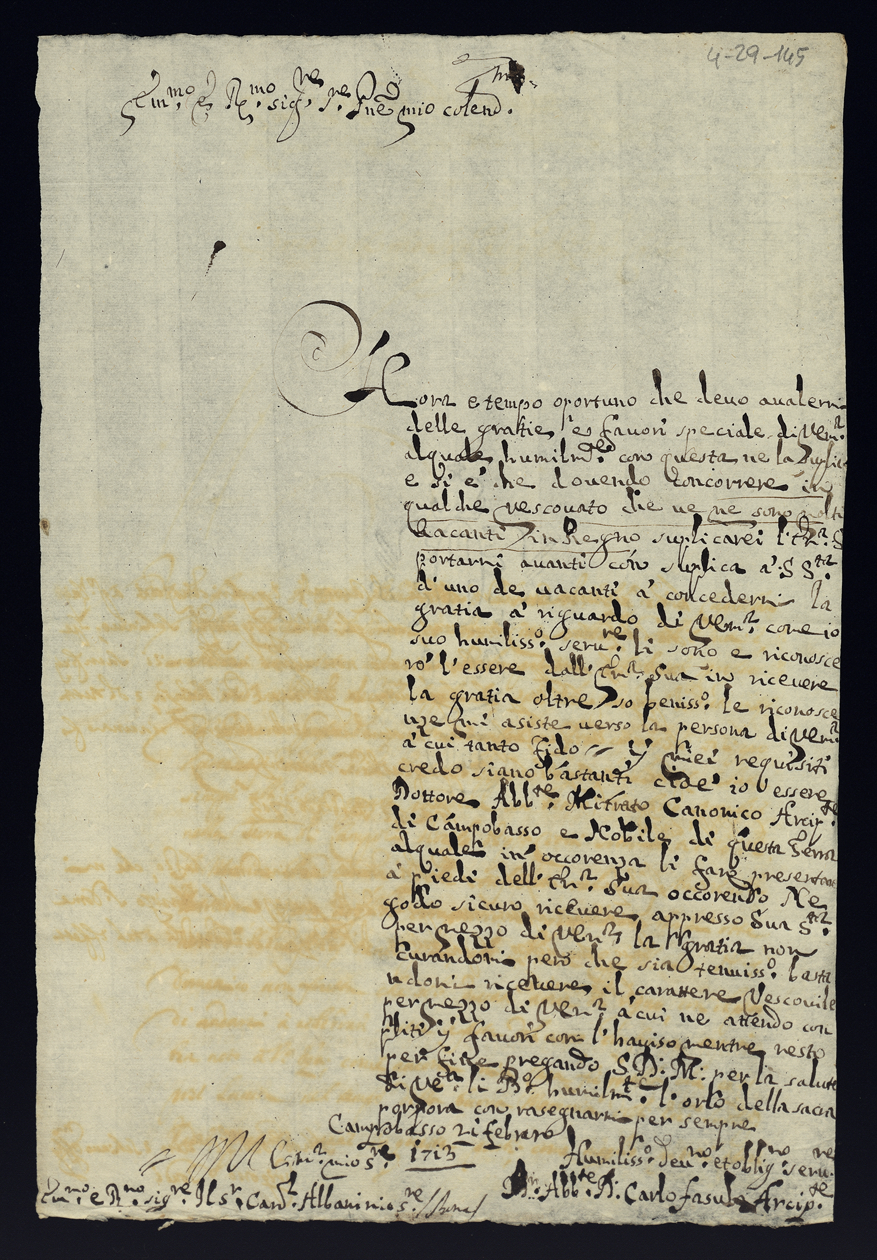 4-29-145
Em.mo e R.mo sig.re P.rone mio colend.mo
Hora e tempo oportuno che devo avalermi
delle gratie, e favori speciale di V.Em.za
alquale humilm.te con questa ne la suplico
e si è che dovendo concorrere in
qualche vescovato che ve ne sono molti
vacanti in Regno suplicarei l'Em.za S
portarmi avanti con suplica à S. S.tà
d'uno de vacanti à concedermi la
gratia à riguardo di V.Em.za come io
suo humiliss.o serv.re li sono e riconosce
rò l'essere dall'Em.za Sua in ricevere
la gratia oltre so beniss.o le riconosce
nze mi asiste verso la persona di V.Em.za
à cui tanto fido y miei requisiti
credo siano bastanti cioè io essere
Dottore Abb.te Mitrato Canonico Arcip.te
di Campobasso e Nobile di questa Terra
alquale in occorenza li farò presentare
à piedi dell'Em.za Sua occorendo Me
godo sicuro ricevere appresso Sua S.tà
per mezzo di V.Em.za la gratia non
curandomi però che sia tenuiss.o basta
ndomi ricevere il carattere Vescovile
per mezzo di V.Em.za à cui ne attendo con
pliti y favori con l'haviso mentre resto
per fine pregando S. D. M. per la salute
di V.Em.za li B.o humilm.te l'orlo della sacra
porpora con rasegnarmi per sempre
Campobasso 21 febraro
1713
Em.za mio s.re
Humiliss.o dev.mo et oblig.mo serv.re
Em.mo e R.mo sig.re Il s.r Card.l Albani mio s.re / Roma /
D.r Abb.te D. Carlo fasulo Arcip.te